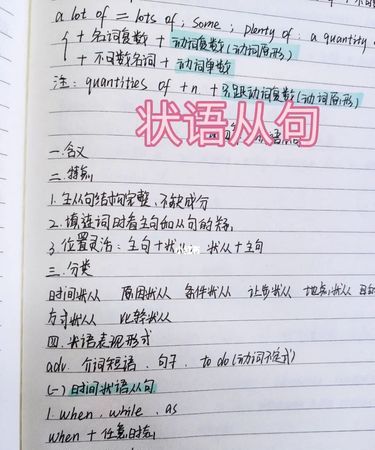 a lot of = lots of ; some ; plenty of ; a quantity
+ 名词复数 + 动词复数(动词原形)
+ 不可数名词 + 动词单数
注: quantities of + n + 动词复数(动词原形)
状语从句
一.含义
二.特点
1. 主从句结构完整,不缺成分
2. 填连词时看主句和从句的关系
3. 位置灵活: 主句+状从 状从+主句
三.分类
时间状从 原因状从 条件状从 让步状从 地点状从 目的
方式状从 比较状从
四.状语表现形式
adv. 介词短语、句子、to do(动词不定式)
(一) 时间状语从句
1. when, while, as
when + 任意时态